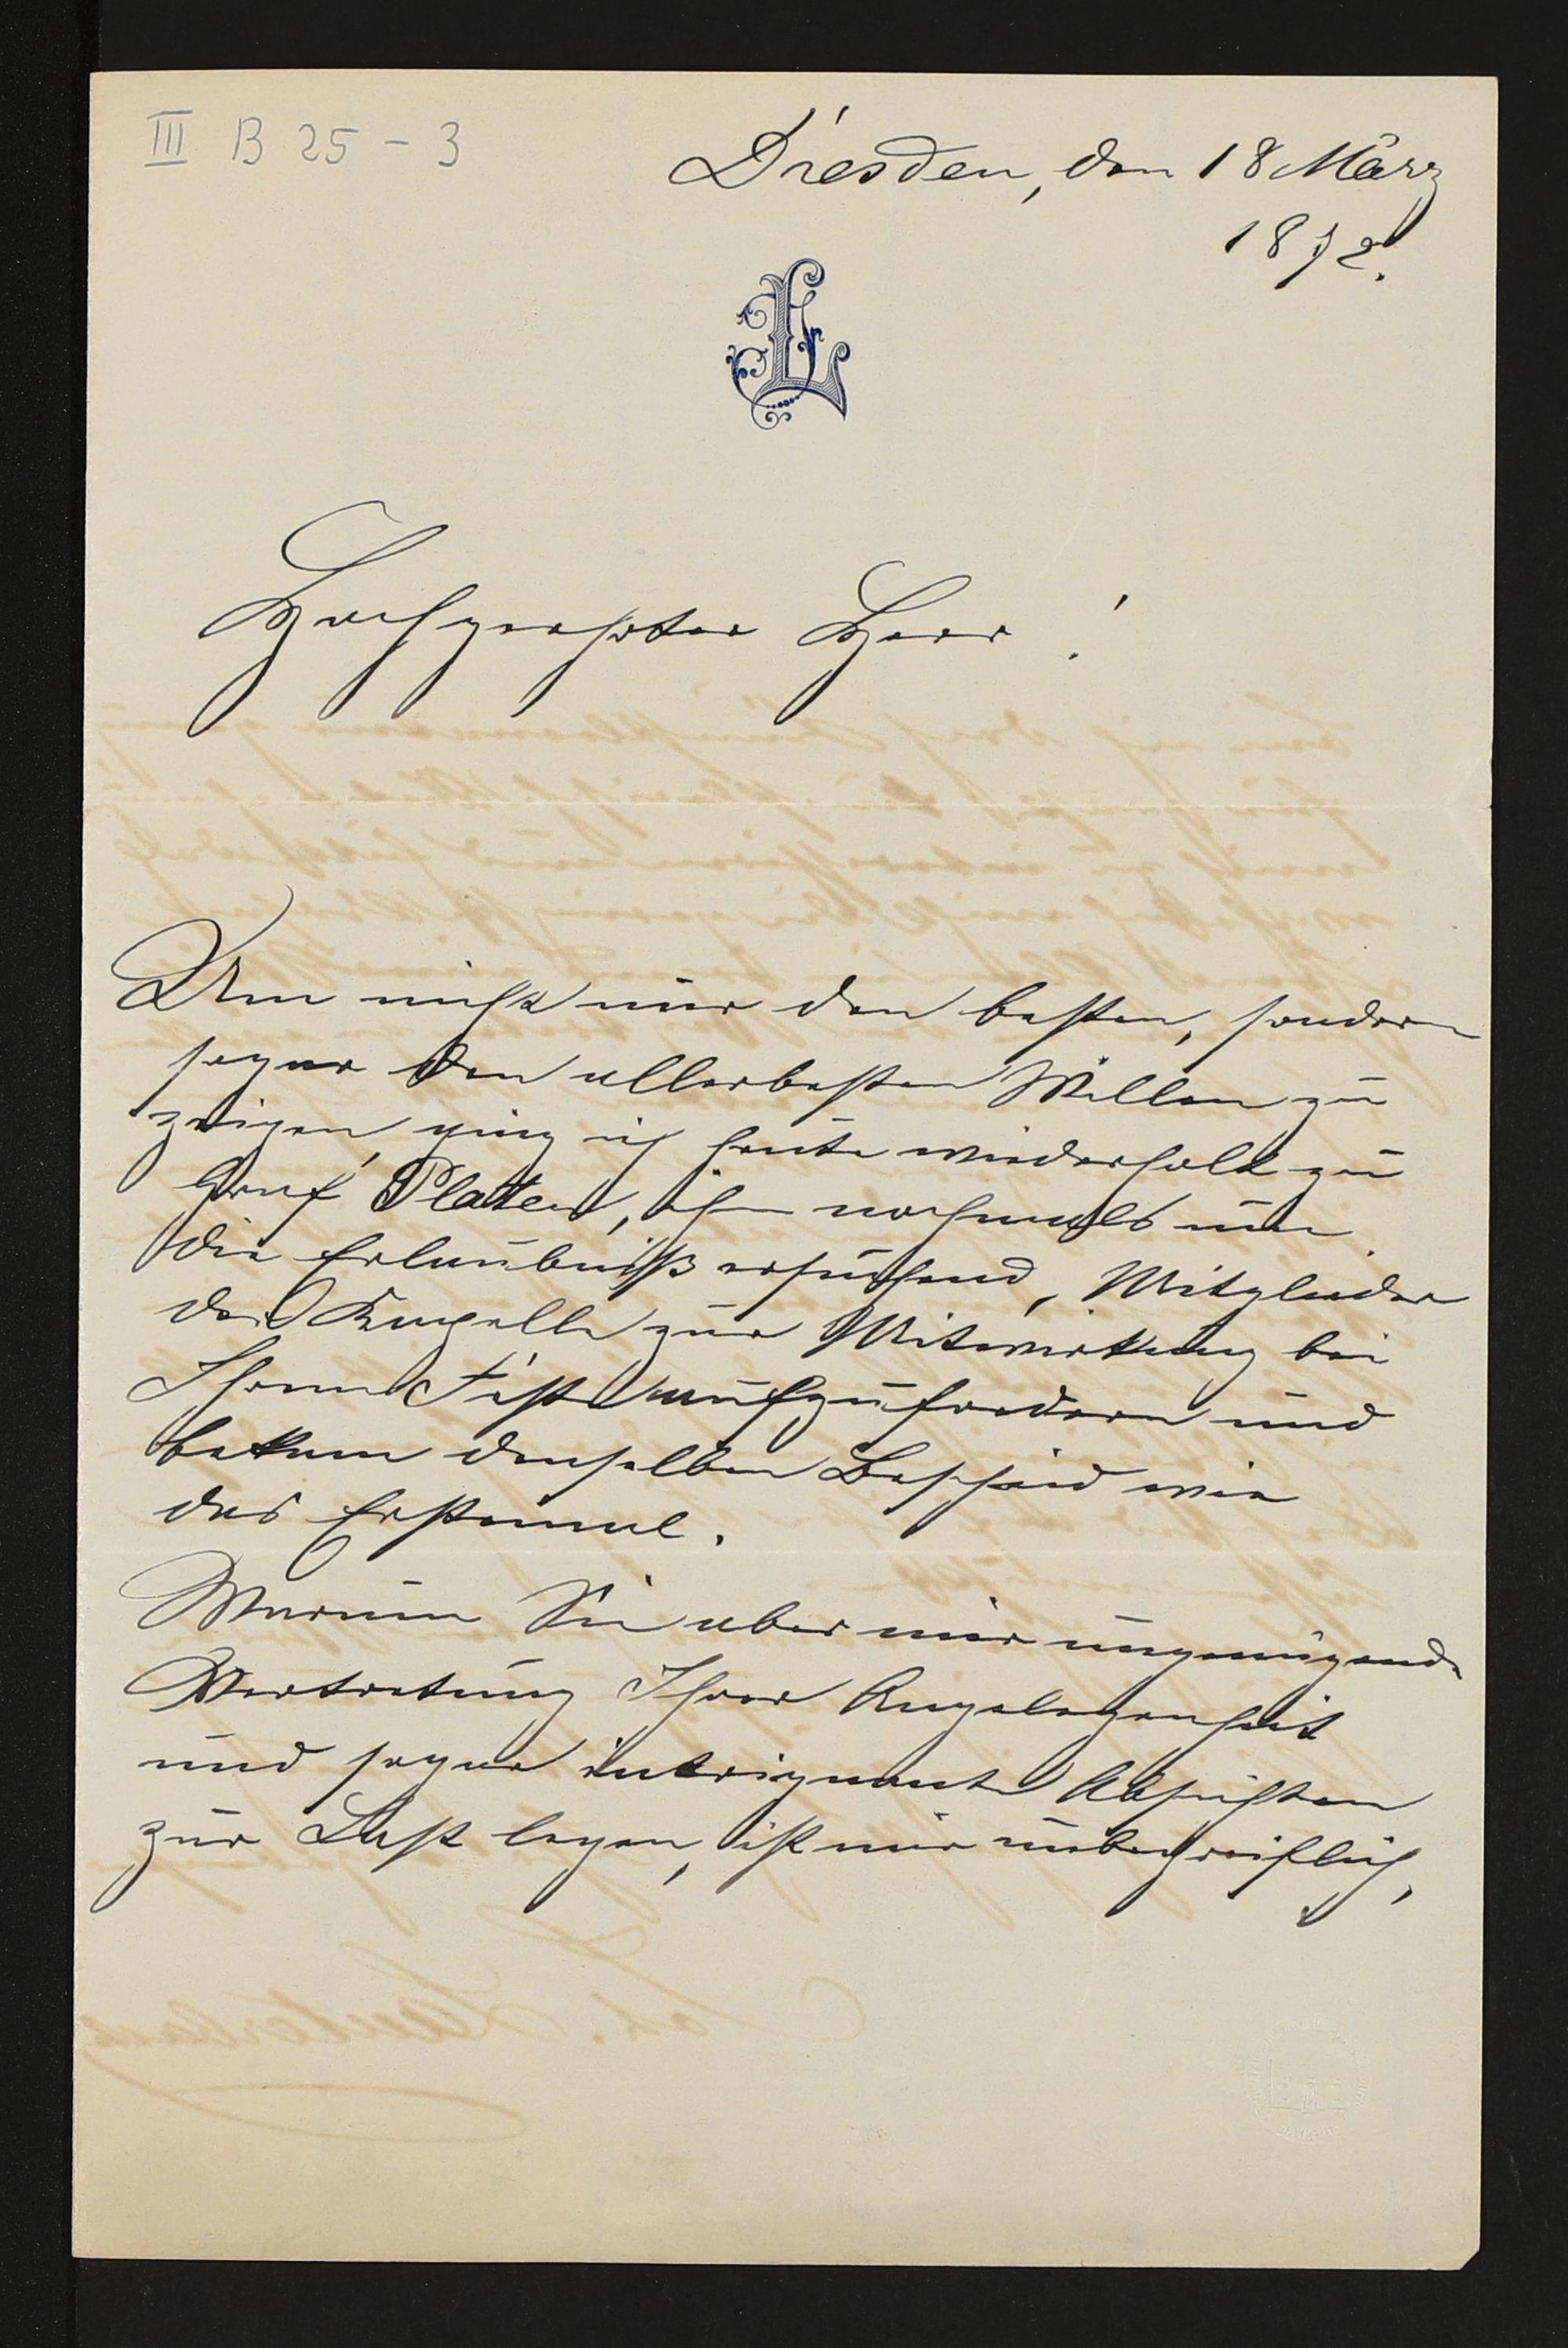 III B 25 - 3
Dresden, den 18 März
1872.
L
Hochgeehrter Herr!
Um nicht nur den besten, sondern
sogar den allerbesten Willen zu
zeigen, ging ich heute wiederholt zu
Graf Platen, ihn nochmals um
die Erlaubniß ersuchend, Mitglieder
der Kapelle zur Mitwirkung bei
Ihrem Feste aufzufordern und
bekam denselben Bescheid wie
das Erstemal.
Warum Sie aber mir ungenügende
Vertretung Ihrer Angelegenheit
und sogar intriguante Absichten
zur Last legen, ist mir unbegreiflich,